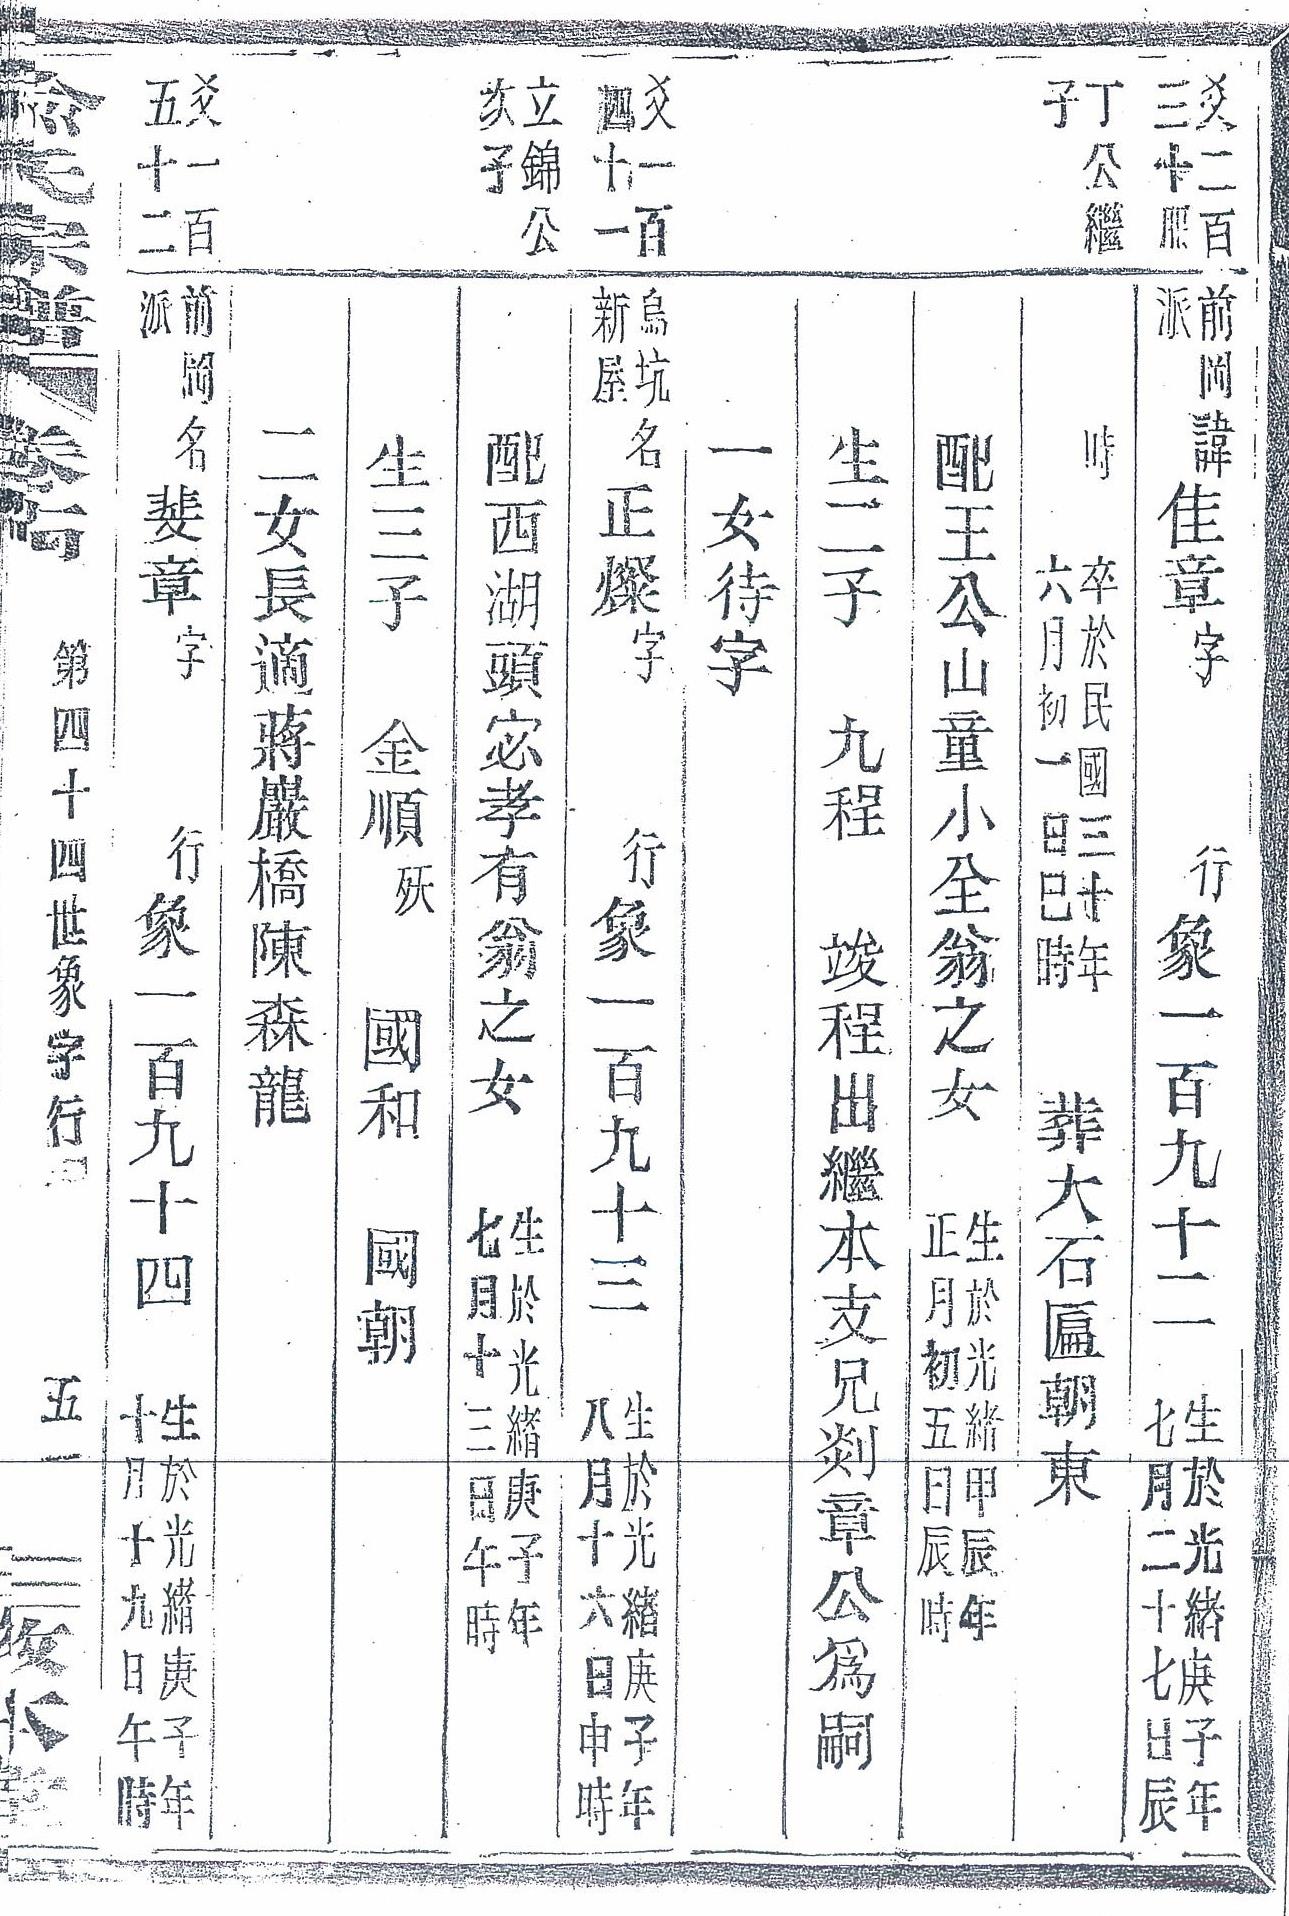 爻二百
三十
丁公繼
子
前岡
派
諱佳章字 行象一百九十二 生於光緒庚子年
七月二十七日辰
時 卒於民國三十年
六月初一日巳時 葬大石匾朝東
配王公山童小全翁之女 生於光緒甲辰年
正月初五日辰時
生二子 九程 竣程出繼本支兄剡章公爲嗣
一女待字
爻一百
四十一
立錦公
次子
烏坑
新屋
名正燦字 行象一百九十三 生於光緒庚子年
八月十六日申時
配西湖頭宓孝有翁之女 生於光緒庚子年
七月十三日午時
生三子 金順殀 國和 國朝
二女長適蔣嚴橋陳森龍
爻一百
五十二
前岡
派
名斐章字 行象一百九十四 生於光緒庚子年
十月十九日午時
宗譜 第四十四世象字行 五